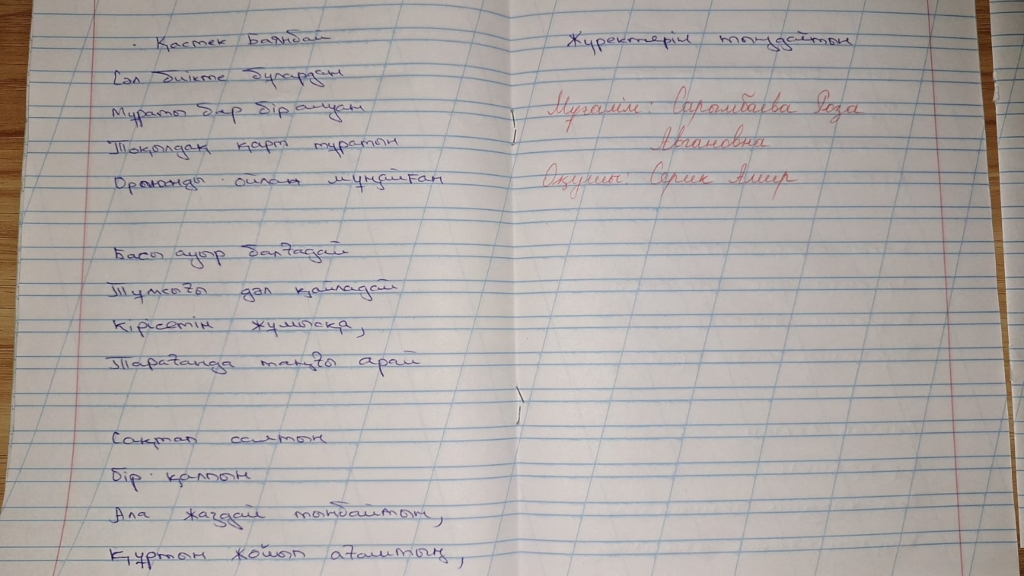 Қастек Баянбай
Сәл биікте бұлардан
Мұраты бар бір алуан
Тоқылдақ қарт тұратын
Орманды ойлап мұңайған
Басы ауыр балғадай
Тұмсығы дәл қайладай
Кірісетін жұмысқа,
Тарағанда таңғы арай
Сақтап салтын
Бір қалпын
Ала жаздай тынбайтын,
Құртын жойып ағаштың,
Жүректерін тыңдайтын
Мұғалім: Сарамбаева Роза
Авгановна
Оқушы: Серик Амир